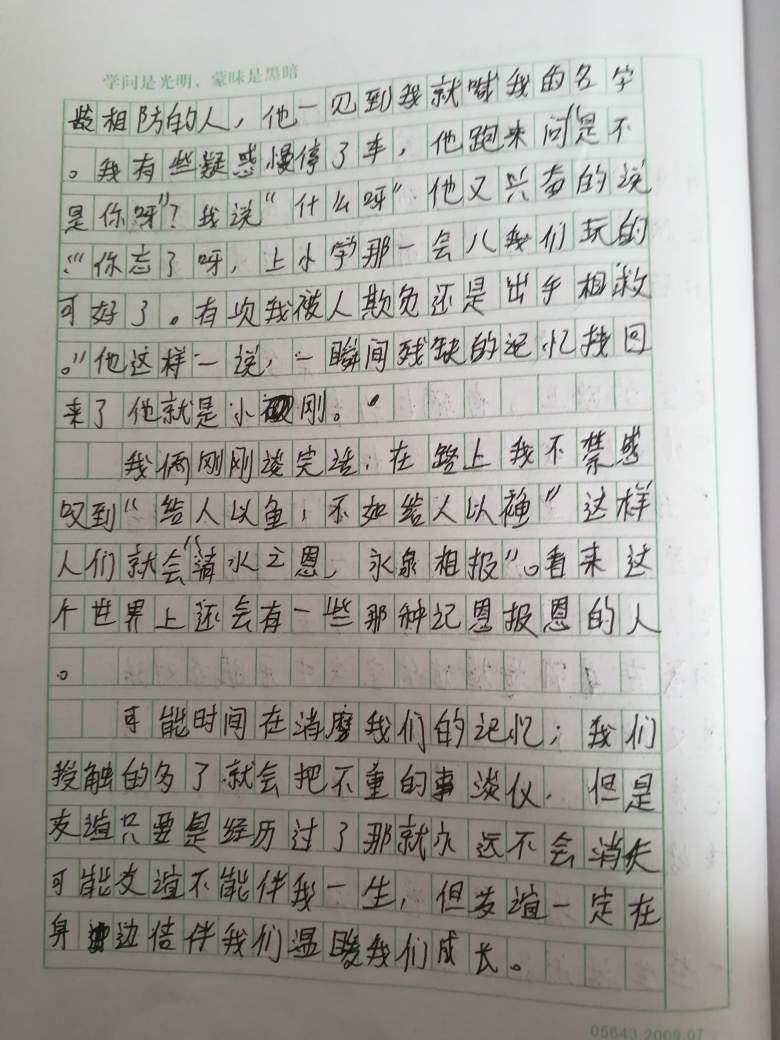 学问是光明，蒙昧是黑暗
相防的人，他一见到我就喊我的名字
。我有些疑惑慢停了车，他跑来问“是不
是你呀”？我说“什么呀”他又兴奋的说
：“你忘了呀，上小学那一会儿我们玩的
可好了。有次我被人欺负还是出手相救
。”他这样一说，一瞬间残缺的记忆找回
来了他就是小刚。
我俩刚刚谈完话，在路上我不禁感
叹到“给人以鱼，不如给人以渔”这样
人们就会“滴水之恩，永泉相报”。看来这
个世界上还会有一些那种记恩报恩的人
。
可能时间在消磨我们的记忆；我们
接触的多了就会把不重的事淡仪，但是
友谊只要是经历过了那就永远不会消失
可能友谊不能伴我一生，但友谊一定在
身边陪伴我们温暖我们成长。
05643.2009.07